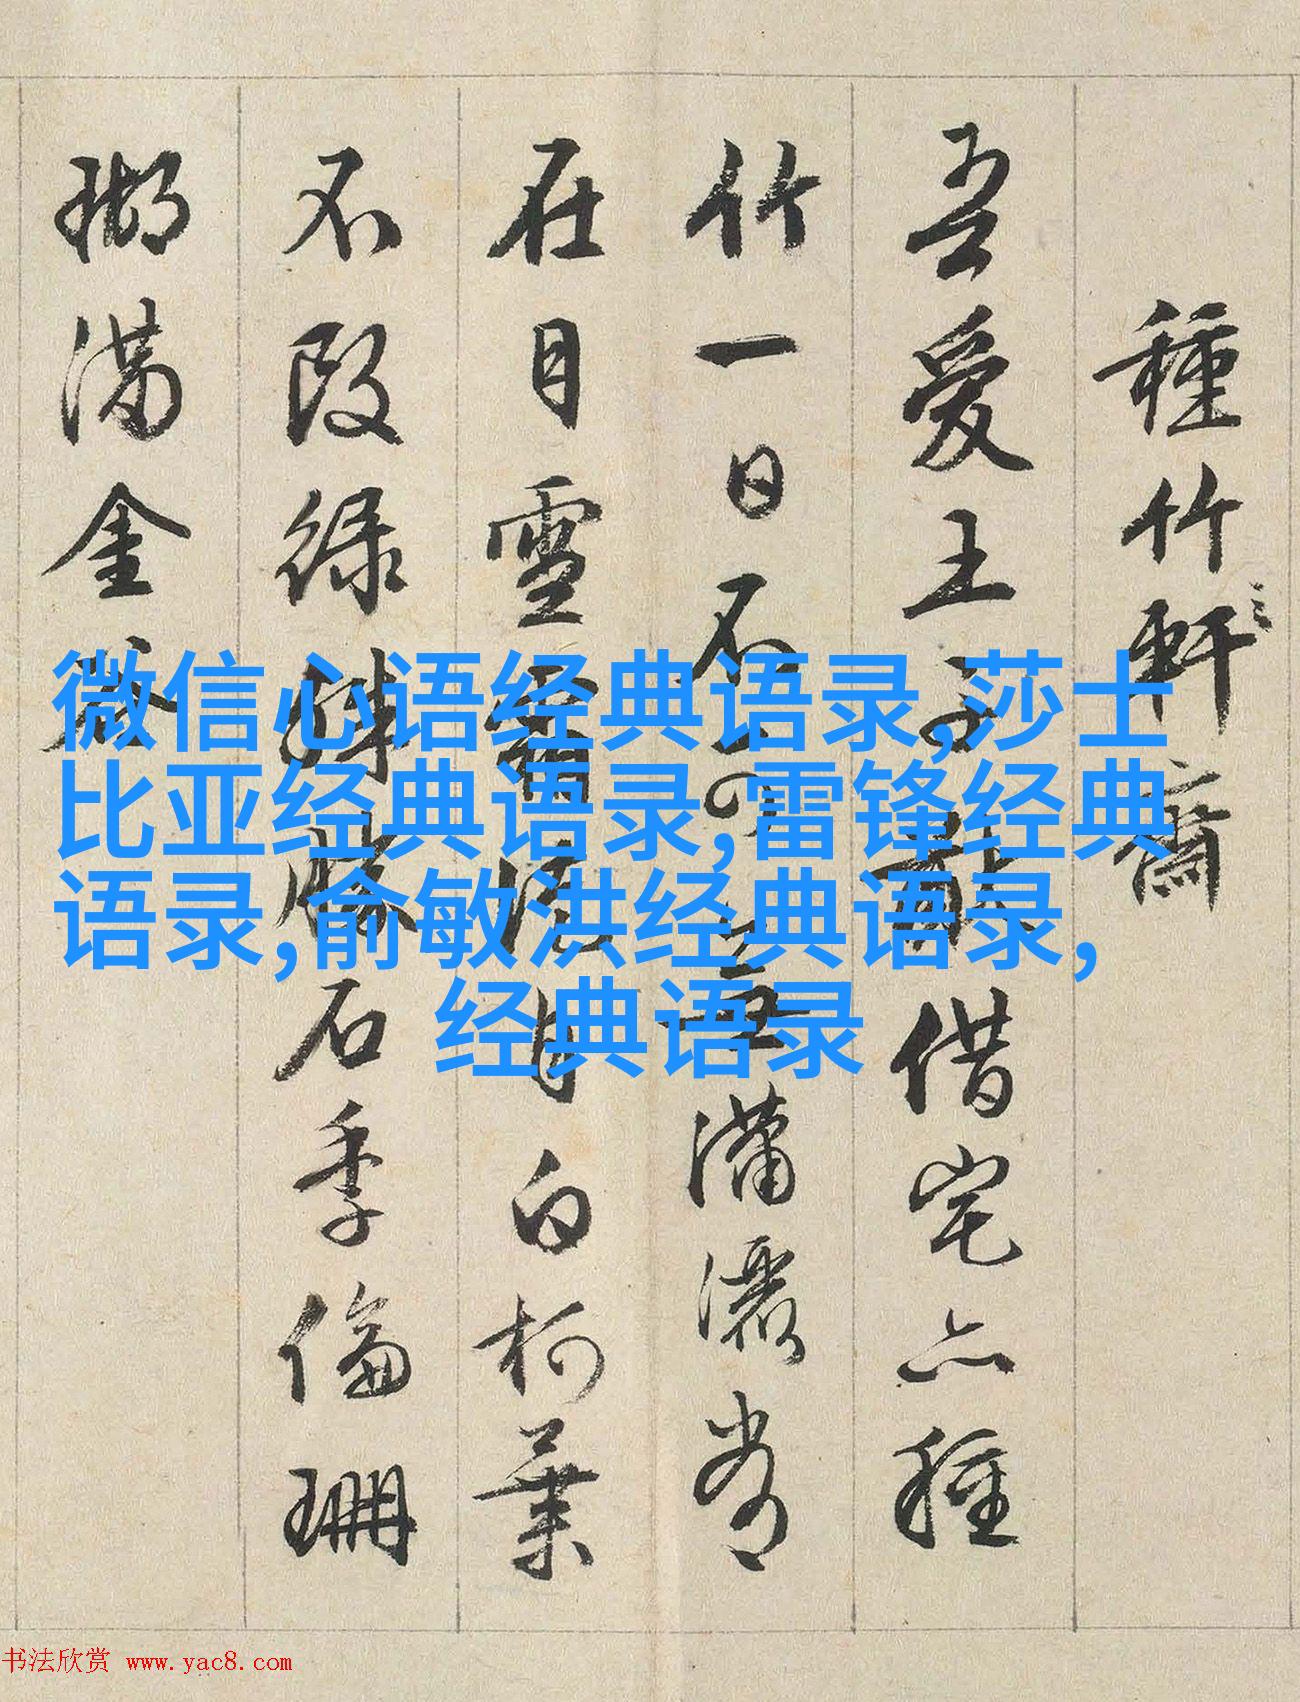 種竹軒齋
吾愛王子猷借宅亦種
竹一日不可無瀟灑常
在目雪霜徒自白柯葉
不改綠殊勝石季倫珊
瑚滿金谷
微信心语经典语录,莎士
比亚经典语录,雷锋经典
语录,俞敏洪经典语录,
经典语录
书法欣赏 www.yac8.com